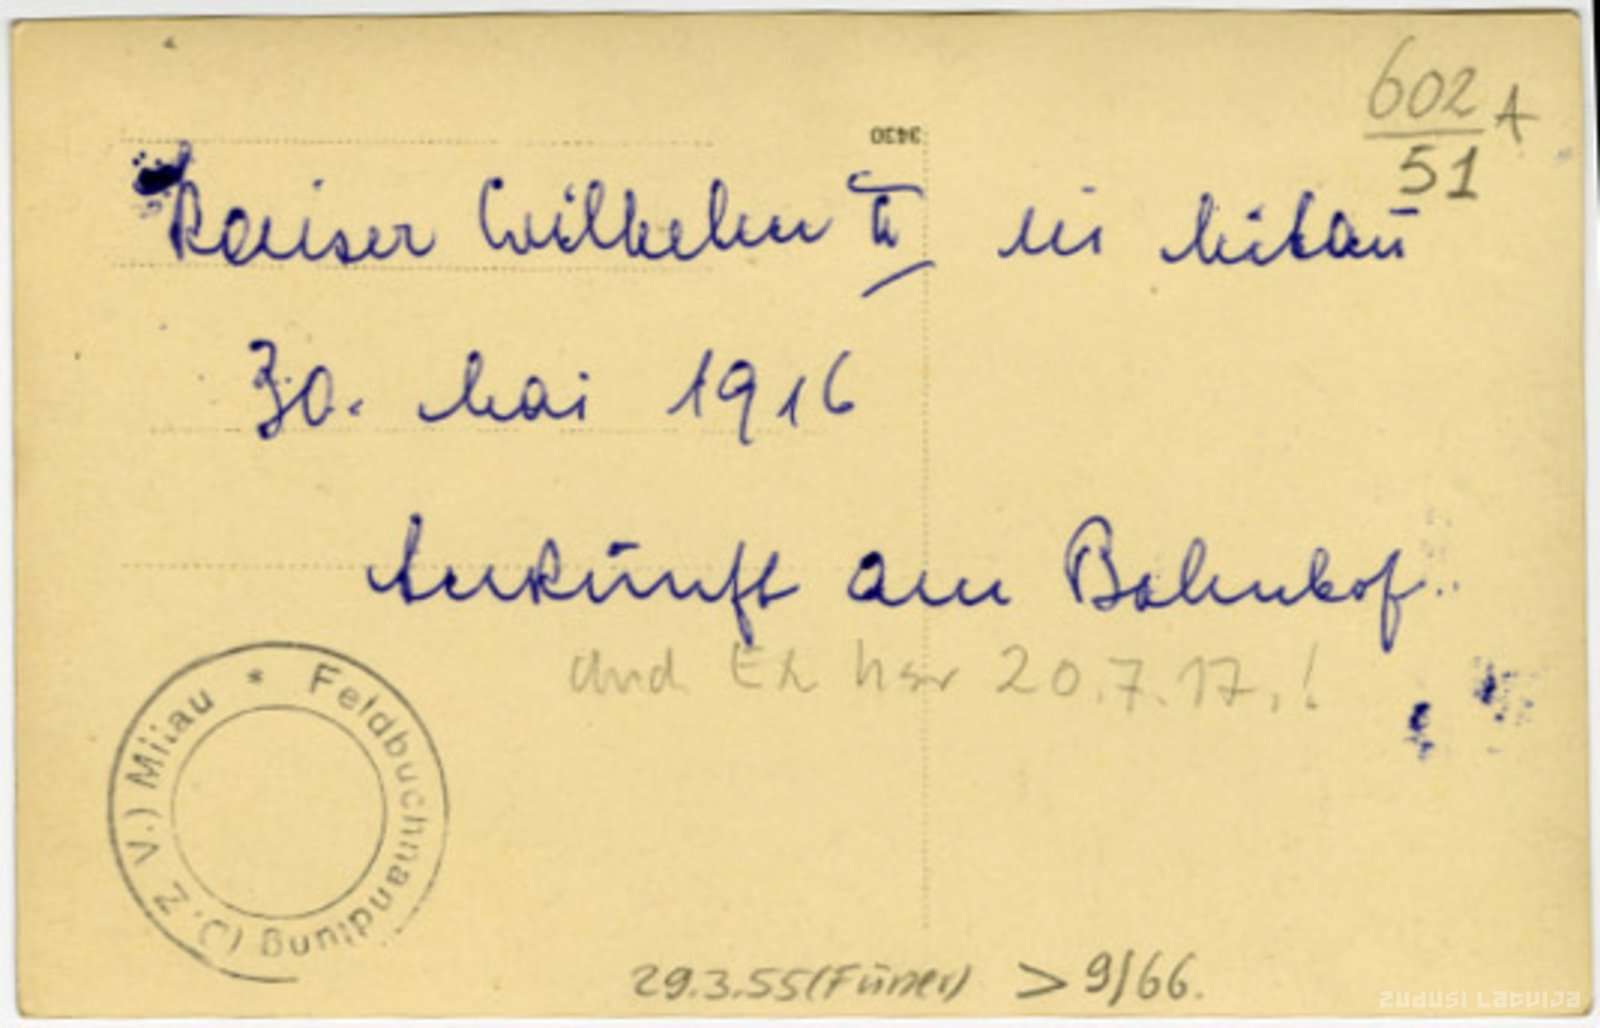 602 A
51
3430
Kaiser Wilhelm II in Mitau
30. Mai 1916
Ankunft am Bahnhof.
und 20.7.17.!
* Feldbuchhandlung (J. Z. V.) Mitau
29.3.55 > 9/66.
zudusi Latvija